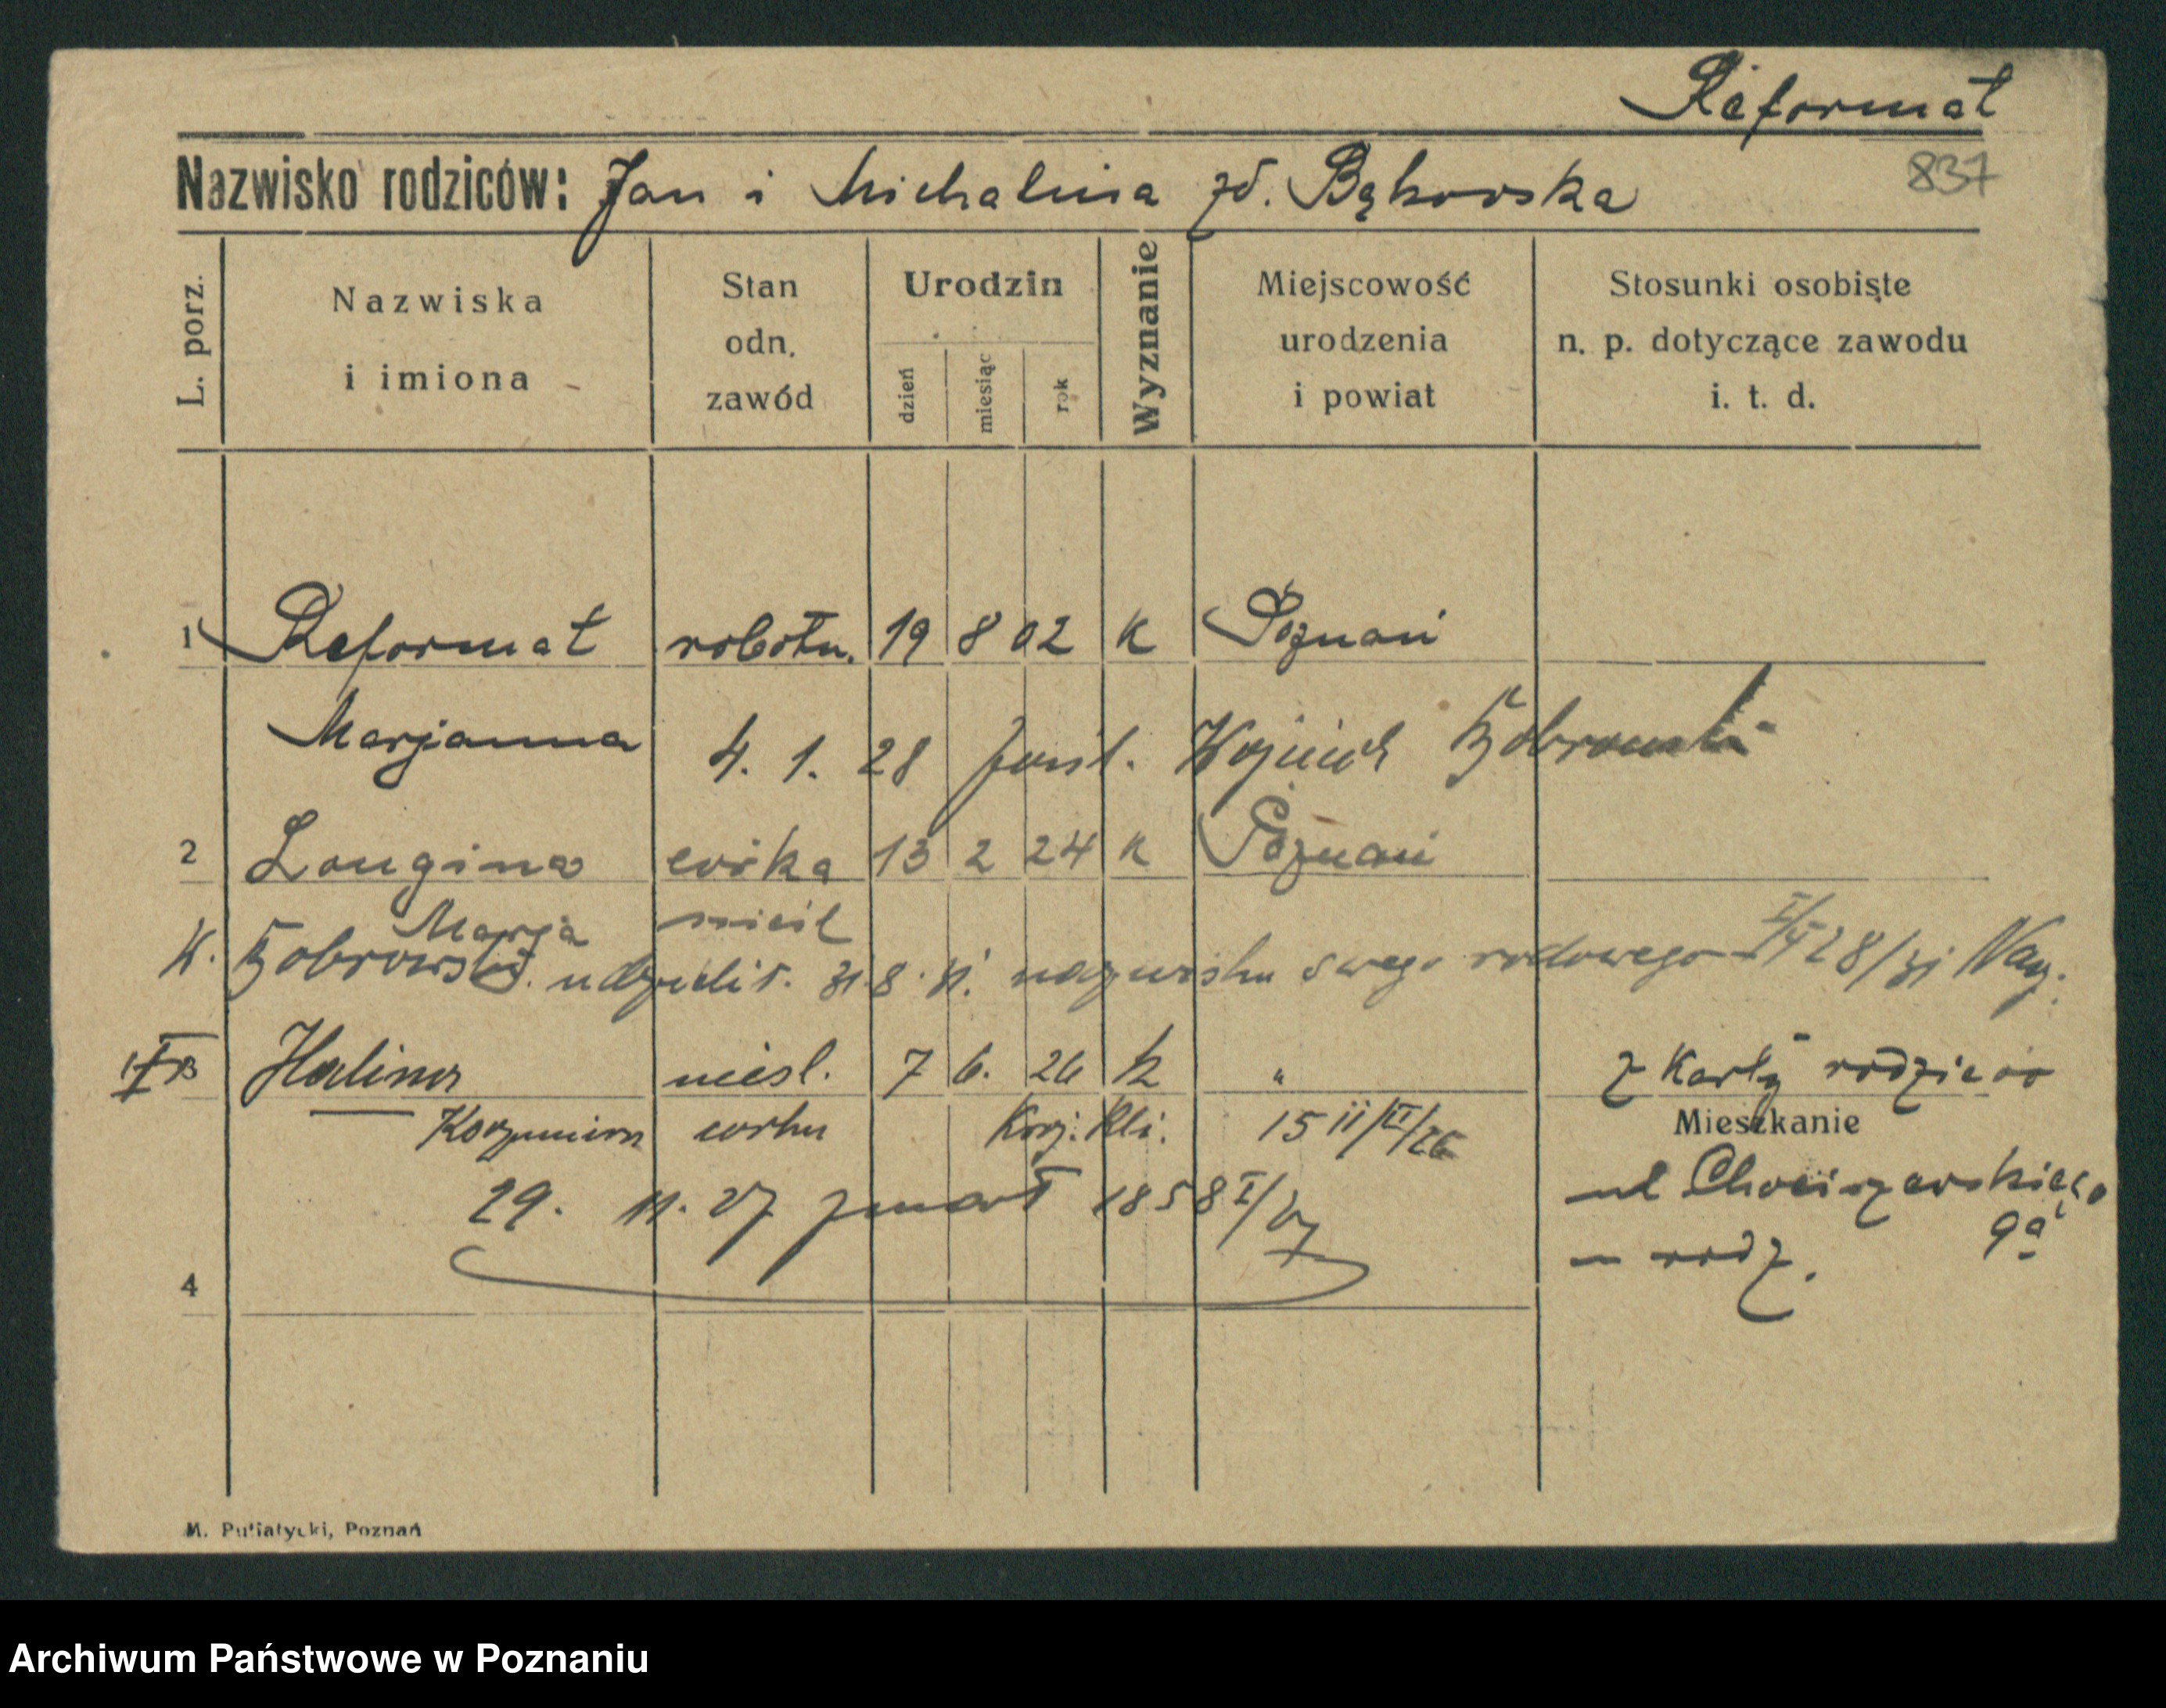 Reformat
837
Nazwisko rodziców: Jan i Michalina zd. Bąkowska
L. porz.
Nazwiska i imiona
Stan odn. zawód
Urodzin
dzień
miesiąc
rok
Wyznanie
Miejscowość urodzenia i powiat
Stosunki osobiste n. p. dotyczące zawodu i. t. d.
1 Reformat robotn. 19 8 02 k Poznań
Marjanna 4. 1. 28 Wojciech
2 Longina córka 13 2 24 k Poznań
Marja nieśl
K. udzielił. 31. 8. 31. nazwiska swego rodowego 28/31
Halina nieśl. 7 6. 26 k " z Karty rodziców
córka 15
Mieszkanie
29. 11. 27 zmarł 1858 I/27
ul
9a
rodz.
4
M. Putiatycki, Poznań
Archiwum Państwowe w Poznaniu